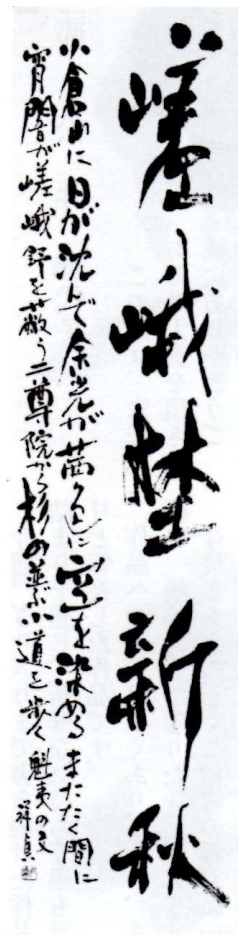 嵯峨埜新秋
小倉山に日が沈んで余光が茜色に空を染める またたく間に
宵闇が嵯峨野を蔽う 二尊院から杉の並ぶ小道を歩く 魁夷の文
祥真